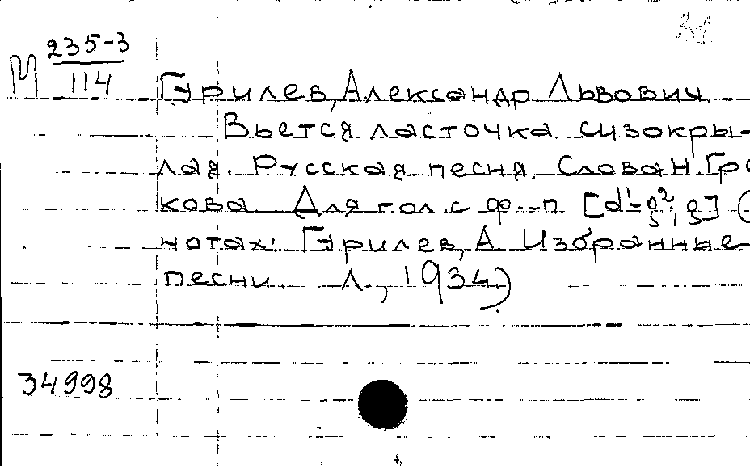 М 235-3
114
Гурилев, Александр Львович
Вьется ласточка сизокры-
лая. Русская песня. Слова Н. Гре
кова. Для гол. с ф.-п. (
нотах: Гурилев, А. Избранные
песни. Л., 1934)
34998